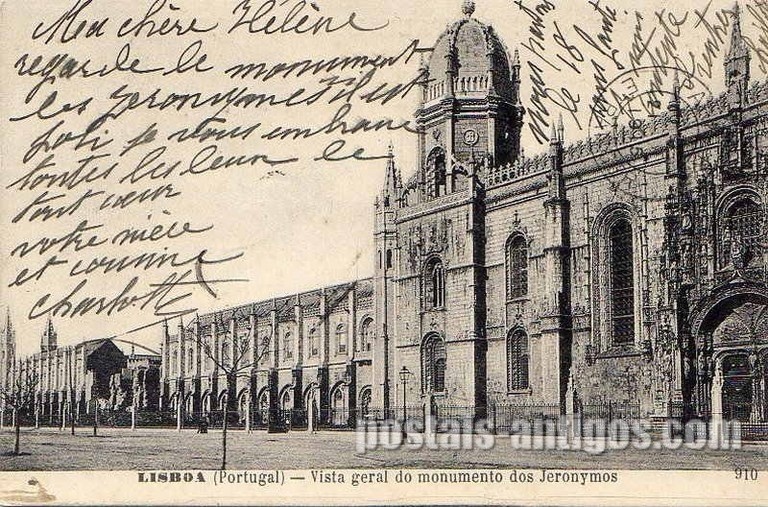 Ma chère Hélène
regarde le monument
les Jeronymes il est
joli je vous embrasse
toutes les deux le
tout cœur
votre nièce
et cousine
Charlotte
nous partons
le 18
nous
rentrer
LISBOA (Portugal) — Vista geral do monumento dos Jeronymos
910
postais-antigos.com